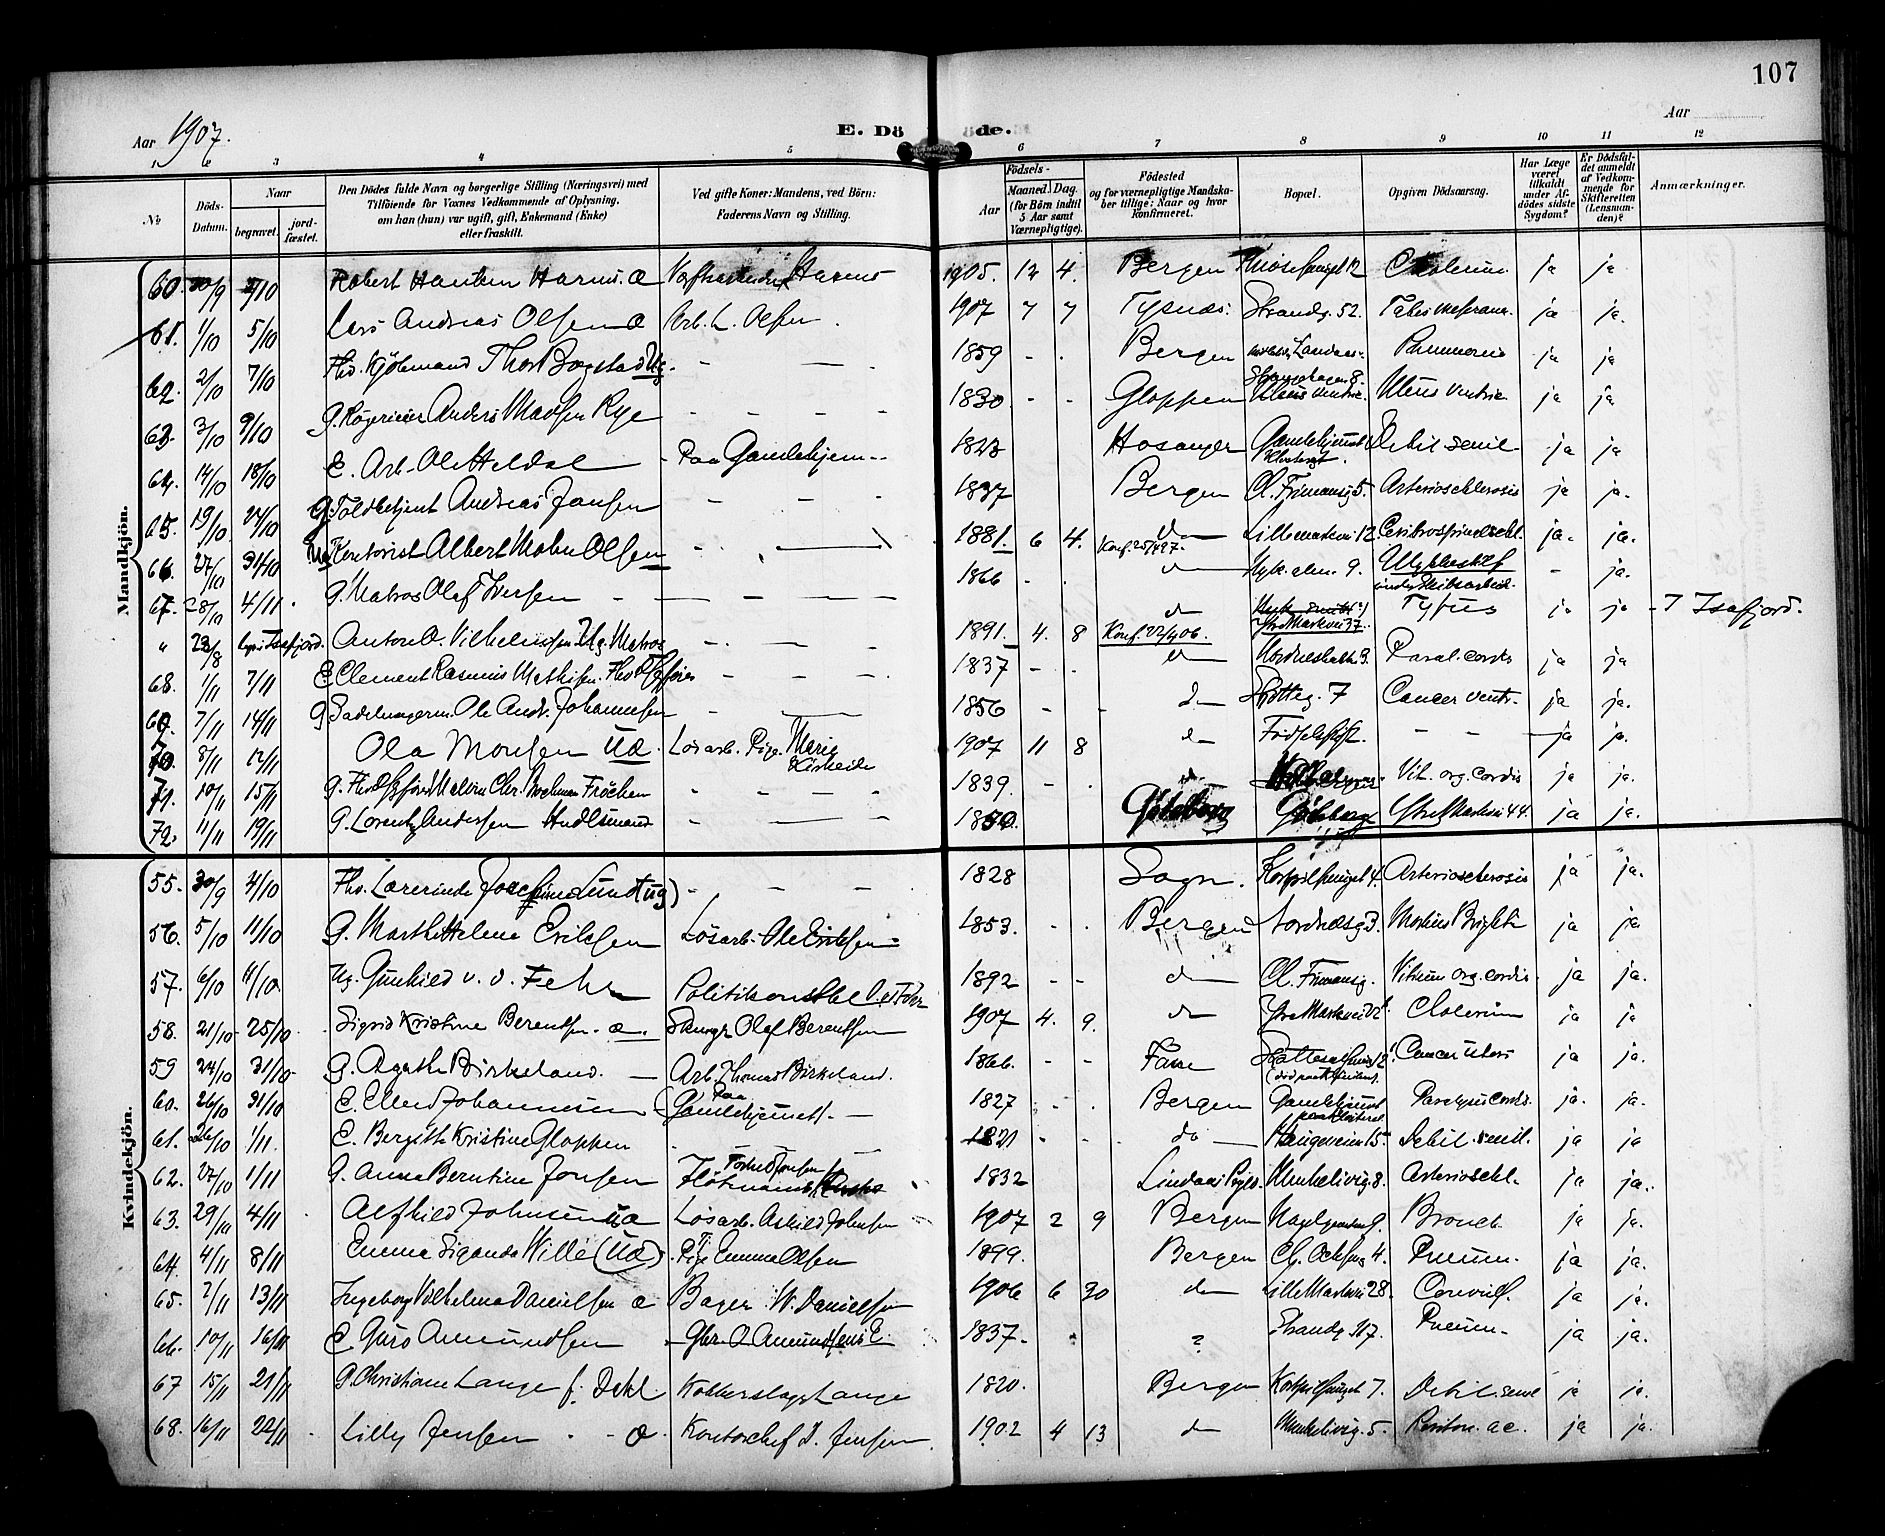 107
Aar 1907.
E. Dö öde.
Aar
1 2 3 4 5 6 7 8 9 10 11 12
No
Döds-Datum.
Naar
begravet.
jord-fæstet.
Den Dödes fulde Navn og borgerlige Stilling (Næringsvei) med
Tilföiende for Voxnes Vedkommende af Oplysning,
om han (hun) var ugift, gift, Enkemand (Enke)
eller fraskilt.
Ved gifte Koner: Mandens, ved Börn:
Faderens Navn og Stilling.
Födsels-
Aar
Maaned. Dag.
(for Börn indtil
5 Aar samt
Værnepligtige).
Födested
og for værnepligtige Mandska-
ber tillige: Naar og hvor
konfirmeret.
Bopæl.
Opgiven Dödsaarsag.
Har Læge
været
tilkaldt
under Af-
dödes sidste
Sygdom?
Er Dödsfal-
det anmeldt
af Vedkom-
mende for
Skifteretten
(Lensman-
den)?
Anmærkninger.
Mandkjön.
60. 30/9 /10 Robert Hansen Harms. æ Harms 1905. 12 4. Bergen 12 Cholerin ja ja
61. 1/10 5/10 Lars Andreas Olsen æ Arb. L. Olsen. 1907 7 7 Tysnæs. Strandg. 52. Tabes meseraica. ja ja.
62. 2/10 7/10 Fhv. Kjöbmand Thor Bogstad Ug. - - 1859 - - Bergen Landaas Pneumoni ja ja
63. 3/10 9/10 G. Anders Madsen Rye - - - - 1830 - - Gloppen Ulcus ventric. ja ja
64. 14/10 18/10 E. Arb. Ole Heldal - Paa Gamlehjem - 1823 Hosanger Gamlehjemmet Debil. senil. ja ja
65. 19/10 24/10 G. Toldbetjent Andreas Jansen - - - 1837 Bergen Cl. Frimansg 5. Arteriosclerosis ja ja.
66. 27/10 31/10 Ug Kontorist Albert Mohn Olsen - 1881. 6 4. do Konf. 25/4 97. Lille markvei 12. ja. ja.
67. 28/10 4/11. G. Matros Olaf Iversen - - - - 1866 - - do Nyk. alm. 9. Ulykkestilf under Skibsarbeid. - ja.
" 23/8 Isafjord. Anton O. Vilhelmsen Ug. Matros - - 1891. 4. 8 do Konf. 22/4 06. Ytre Markvei 37. Tyfus ja ja - I Isafjord.
68. 1/11 7/11 E. Clement Rasmus Mathisen. Fhv. - - - 1837 - - do 3. Paral. cordis ja ja
69. 7/11 14/11 G Sadelmagerm. Ole Andr. Johannesen - - 1856 - - do Skotteg. 7 Cancer ventr. ja ja.
70. 8/11 12/11 Ola Monsen Uæ. Lösarb. Pige. Marie 1907 11 8 do Födselsst. - - ja ja.
71. 10/11 15/11 G. Fhv. Chr. Fröchen - - - - 1839. - - do Vit. org. cordis ja ja.
72. 11/11 19/11 G. Lorentz Andersen Handelsmand - - - 1850. Göteborg Göteborg Ytre Markvei 44. ja ja.
Kvindekjön.
55. 30/9 4/10 Fhv. Lærerinde Josefine Lund (ug) - - - 1828 Sogn. 4. Arteriosclerosis ja ja.
56. 5/10 11/10 G. Marthe Helene Eriksen Lösarb. Ole Eriksen 1853. - - Bergen Nordnesg 3. Morbus Brightii ja ja
57. 6/10 11/10. Ug. Gunhild v. d. Fehr Politikonstbl v. d. Fehr 1892 - - do Cl. Frimansg. Vitium org. cordis. ja ja.
58. 21/10 25/10. Sigrid Kristine Berentsen. æ. Olaf Berentsen 1907 4. 9. do Ytre Markvei 22 Cholerin ja ja
59 24/10 31/10 G. Agathe Birkeland. - Arb. Thomas Birkeland. 1866. - - Fane Cancer uteri ja ja.
60. 26/10 31/10 E. Ellen Johannesen (Paa Gamlehjemmet). - 1827 - - Bergen Gamlehjemmet Paralysis cordis. ja. ja.
61. 26/10 1/11. E. Bergitte Kristine Gloppen - - 1821 - - do Haugeveien 15 Debil. senil. ja ja
62. 27/10 1/11 G. Anna Berntine Jonsen 1832 8. Arterioschl. ja ja.
63. 29/10 4/11 Alfhild Johnsen uæ Lösarb. Askild Johnsen 1907 2 9 Bergen 9. Bronch. ja ja.
64. 4/11 8/11 Emma Sigande Wille (Uæ). Pige Emma Olsen 1899. Bergen 4. Pneum. ja ja.
65. 7/11 13/11 Ingeborg Vilhelmine Danielsen æ Bager W. Danielsen 1906 6 20 do Lille Markvei 28. ja ja.
66. 10/11 16/11 E. Guro Amundsen - O. Amundsens E. 1837. ? Strandg 117. Pneum. ja ja.
67 15/11 21/11 G. Christiane Lange f. Dahl. Kobberslager Lange 1820. Bergen 7. Debil. senil ja ja.
68. 16/11 22/11 Lilly Jensen - - æ Kontorchef I. Jensen. 1902 4 13 do Munkelivsg. 5. Periton. ac. ja ja.